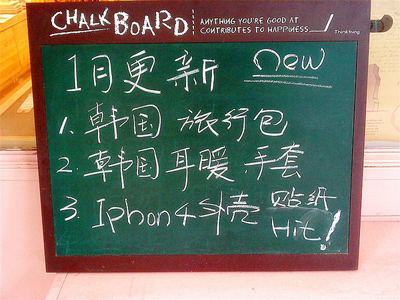 CHALK BOARD
ANYTHING YOU'RE GOOD AT
CONTRIBUTES TO HAPPINESS
Thinkthing
1月更新 new
1. 韩国 旅行包
2. 韩国 耳暖 手套
3. Iphon4外壳 贴纸
Hit!